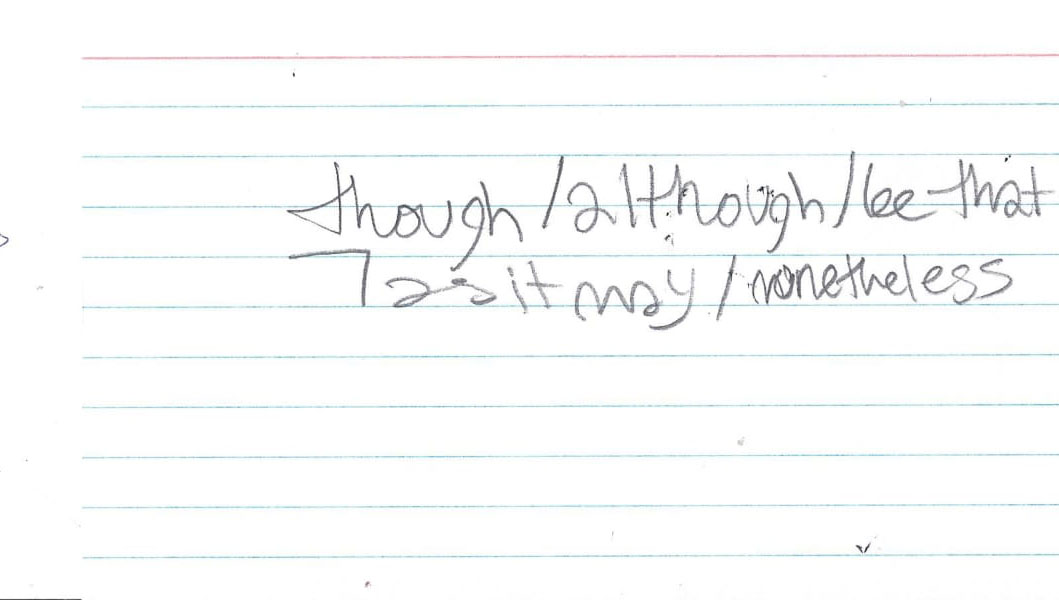 though / although / be that
as it may / nonetheless